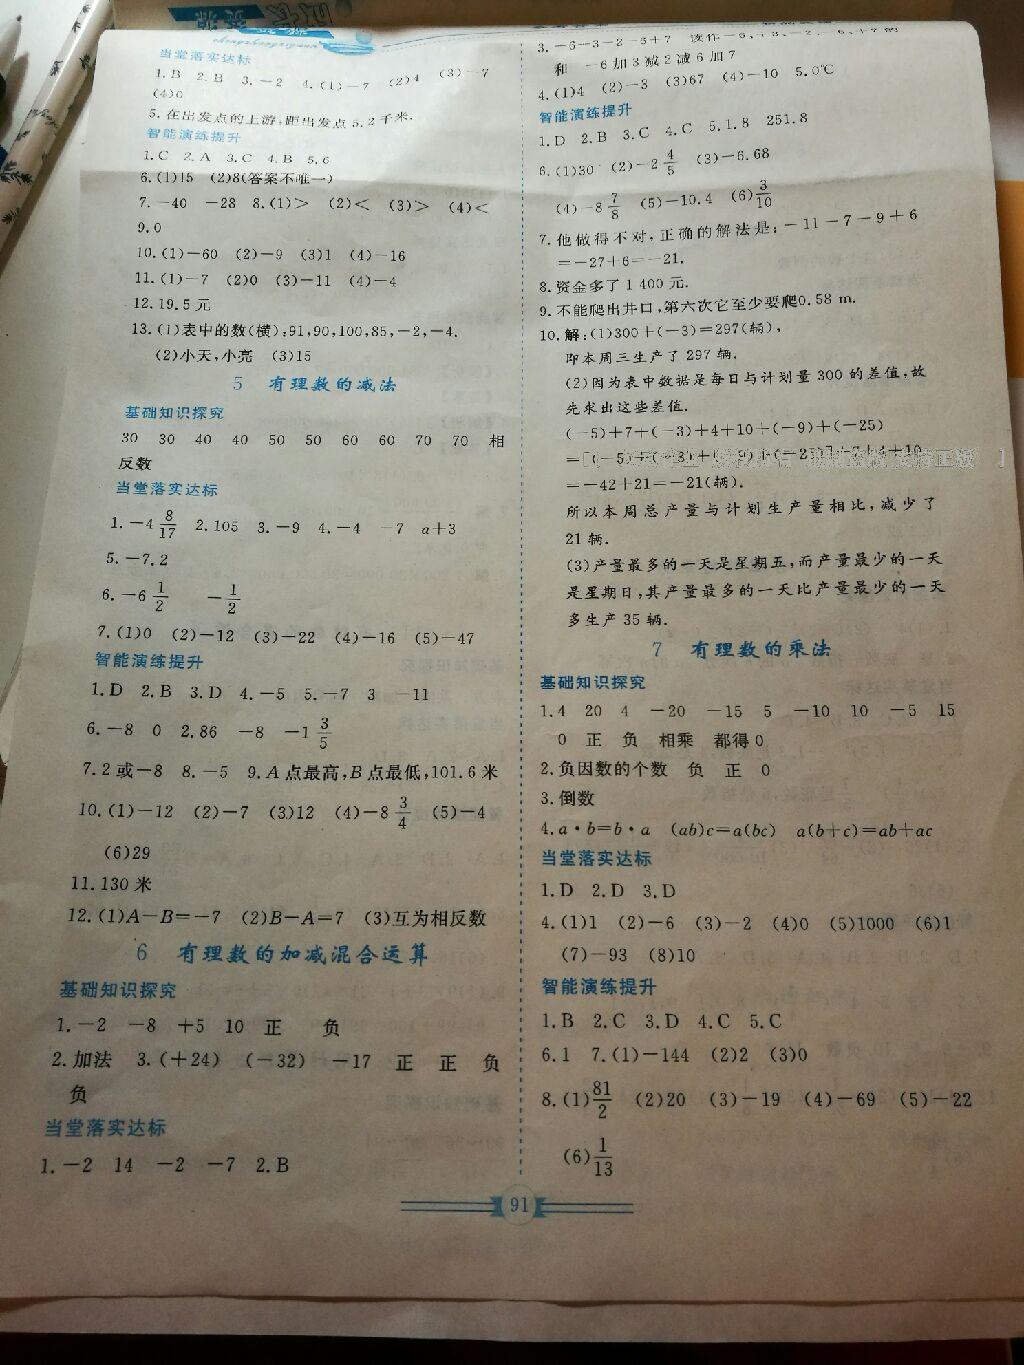 当堂落实达标
1.B 2.B 3.-2 4.(1)-7 (2)4 (3)-7
(4)0
5.在出发点的上游,距出发点5.2千米.
智能演练提升
1.C 2.A 3.C 4.B 5.6
6.(1)15 (2)8(答案不唯一)
7.-40 -28 8.(1)> (2)< (3)> (4)<
9.0
10.(1)-60 (2)-9 (3)1 (4)-16
11.(1)-7 (2)0 (3)-11 (4)-4
12.19.5元
13.(1)表中的数(横):91,90,100,85,-2,-4.
(2)小天,小亮 (3)15
5 有理数的减法
基础知识探究
30 30 40 40 50 50 60 60 70 70 相
反数
当堂落实达标
1.-4 8/17 2.105 3.-9 4.-4 -7 a+3
5.-7.2
6.-6 1/2 -1/2
7.(1)0 (2)-12 (3)-22 (4)-16 (5)-47
智能演练提升
1.D 2.B 3.D 4.-5 5.-7 3 -11
6.-8 0 2.86 -8 -1 3/5
7.2或-8 8.-5 9.A点最高,B点最低,101.6米
10.(1)-12 (2)-7 (3)12 (4)-8 3/4 (5)-4
(6)29
11.130米
12.(1)A-B=-7 (2)B-A=7 (3)互为相反数
6 有理数的加减混合运算
基础知识探究
1.-2 -8 +5 10 正 负
2.加法 3.(+24) (-32) -17 正 正 负
负
当堂落实达标
1.-2 14 -2 -7 2.B
和 -6加3减2减6加7
4.(1)4 (2)-3 (3)67 (4)-10 5.0℃
智能演练提升
1.D 2.B 3.C 4.C 5.1.8 251.8
6.(1)30 (2)-2 4/5 (3)-6.68
(4)-8 7/8 (5)-10.4 (6)3/10
7.他做得不对,正确的解法是:-11-7-9+6
=-27+6=-21.
8.资金多了1 400元.
9.不能爬出井口,第六次它至少要爬0.58 m.
10.解:(1)300+(-3)=297(辆),
即本周三生产了297辆.
(2)因为表中数据是每日与计划量300的差值,故
先求出这些差值.
(-5)+7+(-3)+4+10+(-9)+(-25)
=[(-5)+(-3)+(-9)+(-25)]+7+4+10
=-42+21=-21(辆).
所以本周总产量与计划生产量相比,减少了
21辆.
(3)产量最多的一天是星期五,而产量最少的一天
是星期日,其产量最多的一天比产量最少的一天
多生产35辆.
7 有理数的乘法
基础知识探究
1.4 20 4 -20 -15 5 -10 10 -5 15
0 正 负 相乘 都得0
2.负因数的个数 负 正 0
3.倒数
4.a·b=b·a (ab)c=a(bc) a(b+c)=ab+ac
当堂落实达标
1.D 2.D 3.D
4.(1)1 (2)-6 (3)-2 (4)0 (5)1000 (6)1
(7)-93 (8)10
智能演练提升
1.B 2.C 3.D 4.C 5.C
6.1 7.(1)-144 (2)2 (3)0
8.(1)81/2 (2)20 (3)-19 (4)-69 (5)-22
(6)1/13
91